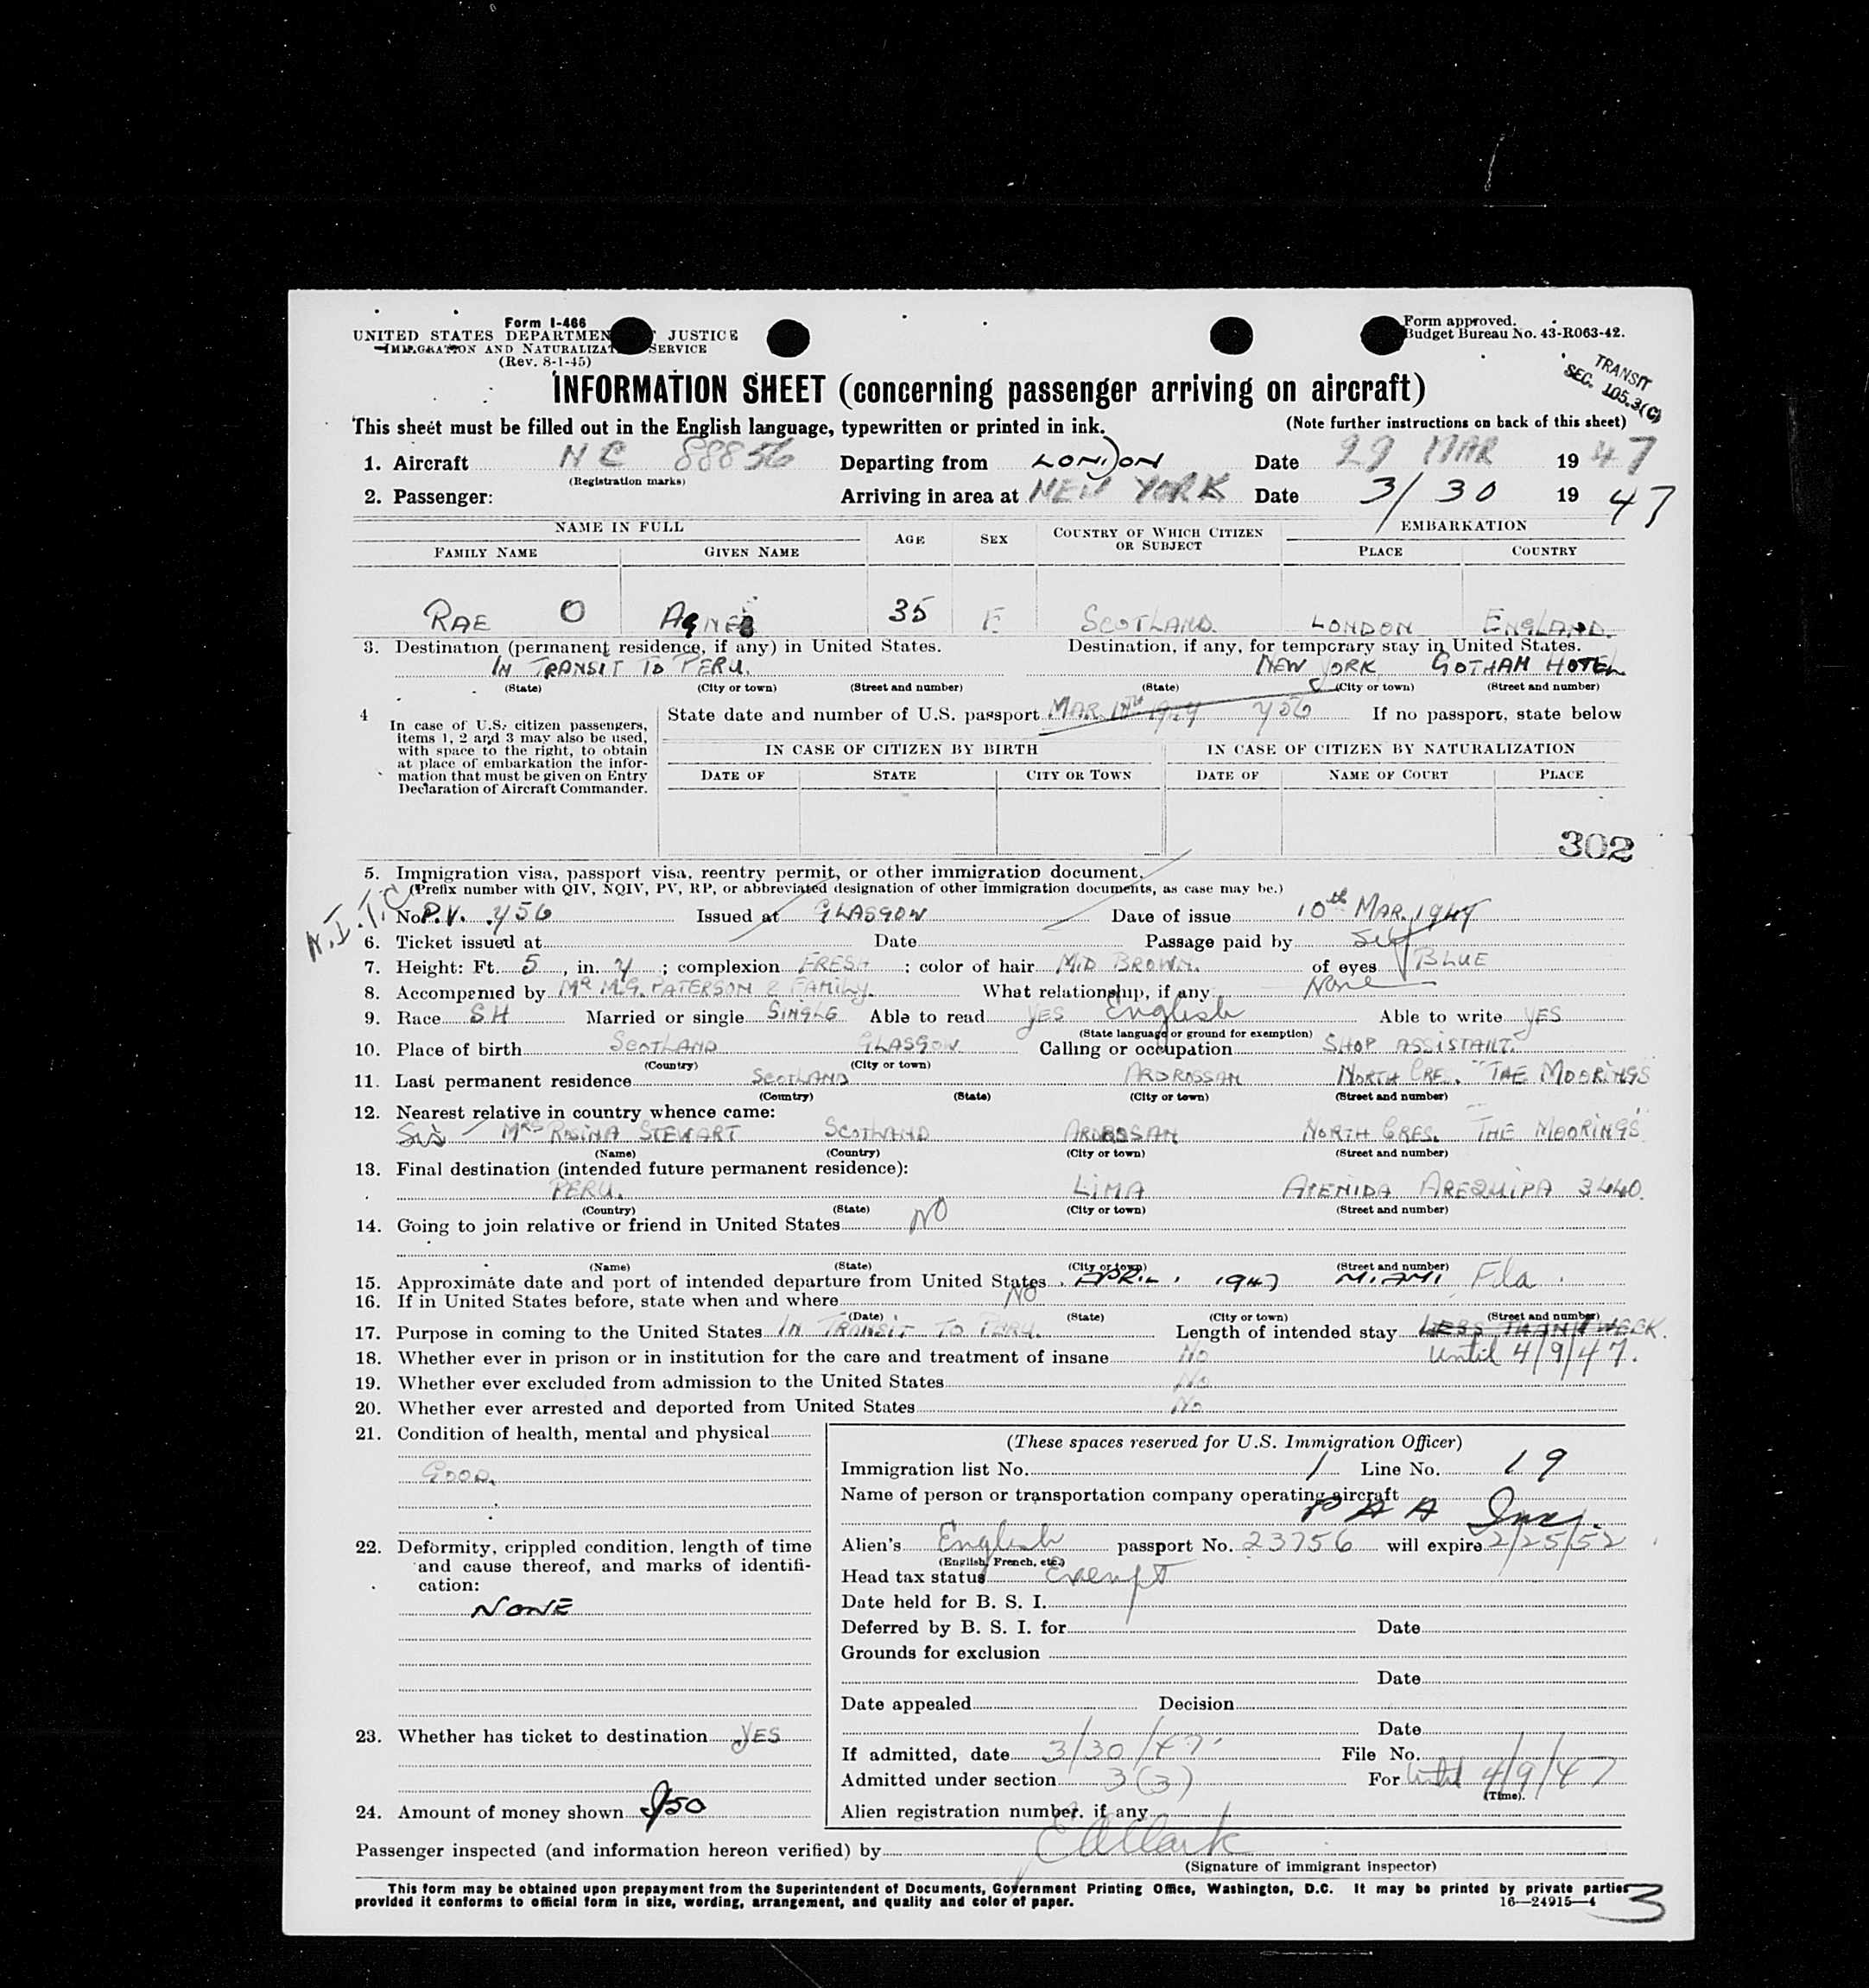 Form I-466
UNITED STATES DEPARTMENT JUSTICE
IMMIGRATION AND NATURALIZATION SERVICE
(Rev. 8-1-45)
Form approved.
Budget Bureau No. 43-R063-42.
TRANSIT
SEC. 105.3(C)
INFORMATION SHEET (concerning passenger arriving on aircraft)
This sheet must be filled out in the English language, typewritten or printed in ink. (Note further instructions on back of this sheet)
1. Aircraft NC 88856 Departing from LONDON Date 29 MAR 19 47
(Registration marks)
2. Passenger: Arriving in area at NEW YORK Date 3/30 19 47
NAME IN FULL AGE SEX COUNTRY OF WHICH CITIZEN OR SUBJECT EMBARKATION
FAMILY NAME GIVEN NAME PLACE COUNTRY
RAE O AGNES 35 F. SCOTLAND. LONDON ENGLAND.
3. Destination (permanent residence, if any) in United States. Destination, if any, for temporary stay in United States.
IN TRANSIT TO PERU. NEW YORK GOTHAM HOTEL
(State) (City or town) (Street and number) (State) (City or town) (Street and number)
4 In case of U.S. citizen passengers, items 1, 2 and 3 may also be used, with space to the right, to obtain at place of embarkation the information that must be given on Entry Declaration of Aircraft Commander.
State date and number of U.S. passport MAR. 1947 456 If no passport, state below
IN CASE OF CITIZEN BY BIRTH IN CASE OF CITIZEN BY NATURALIZATION
DATE OF STATE CITY OR TOWN DATE OF NAME OF COURT PLACE
302
5. Immigration visa, passport visa, reentry permit, or other immigration document.
(Prefix number with QIV, NQIV, PV, RP, or abbreviated designation of other immigration documents, as case may be.)
N.I.T.C
No. P.V. 456 Issued at GLASGOW Date of issue 10th MAR. 1947
6. Ticket issued at Date Passage paid by Self
7. Height: Ft. 5, in. 4; complexion FRESH; color of hair MID BROWN. of eyes BLUE
8. Accompanied by MR M.G. PATERSON & FAMILY. What relationship, if any None
9. Race SH Married or single SINGLE Able to read YES English Able to write YES
(State language or ground for exemption)
10. Place of birth SCOTLAND GLASGOW Calling or occupation SHOP ASSISTANT.
(Country) (City or town)
11. Last permanent residence SCOTLAND ARDROSSAN NORTH CRES. "THE MOORINGS
(Country) (State) (City or town) (Street and number)
12. Nearest relative in country whence came:
Sis MRS ROSINA STEWART SCOTLAND ARDROSSAN NORTH CRES. THE MOORINGS
(Name) (Country) (City or town) (Street and number)
13. Final destination (intended future permanent residence):
PERU. LIMA AVENIDA AREQUIPA 3440.
(Country) (State) (City or town) (Street and number)
14. Going to join relative or friend in United States NO
(Name) (State) (City or town) (Street and number)
15. Approximate date and port of intended departure from United States APRIL 1947 MIAMI Fla.
16. If in United States before, state when and where NO
(Date) (State) (City or town) (Street and number)
17. Purpose in coming to the United States IN TRANSIT TO PERU. Length of intended stay LESS THAN 1 WEEK.
until 4/9/47.
18. Whether ever in prison or in institution for the care and treatment of insane No
19. Whether ever excluded from admission to the United States No
20. Whether ever arrested and deported from United States No
21. Condition of health, mental and physical
GOOD.
22. Deformity, crippled condition, length of time and cause thereof, and marks of identification:
NONE
23. Whether has ticket to destination YES
24. Amount of money shown $50
(These spaces reserved for U.S. Immigration Officer)
Immigration list No. 1 Line No. 19
Name of person or transportation company operating aircraft
PAA Inc.
Alien's English passport No. 23756 will expire 2/25/52
(English, French, etc.)
Head tax status Exempt
Date held for B. S. I.
Deferred by B. S. I. for Date
Grounds for exclusion
Date
Date appealed Decision
Date
If admitted, date 3/30/47. File No.
Admitted under section 3(3) For Until 4/9/47
(Time).
Alien registration number, if any
Passenger inspected (and information hereon verified) by E A Clark
(Signature of immigrant inspector)
This form may be obtained upon prepayment from the Superintendent of Documents, Government Printing Office, Washington, D.C. It may be printed by private parties
provided it conforms to official form in size, wording, arrangement, and quality and color of paper. 16—24915—4
3